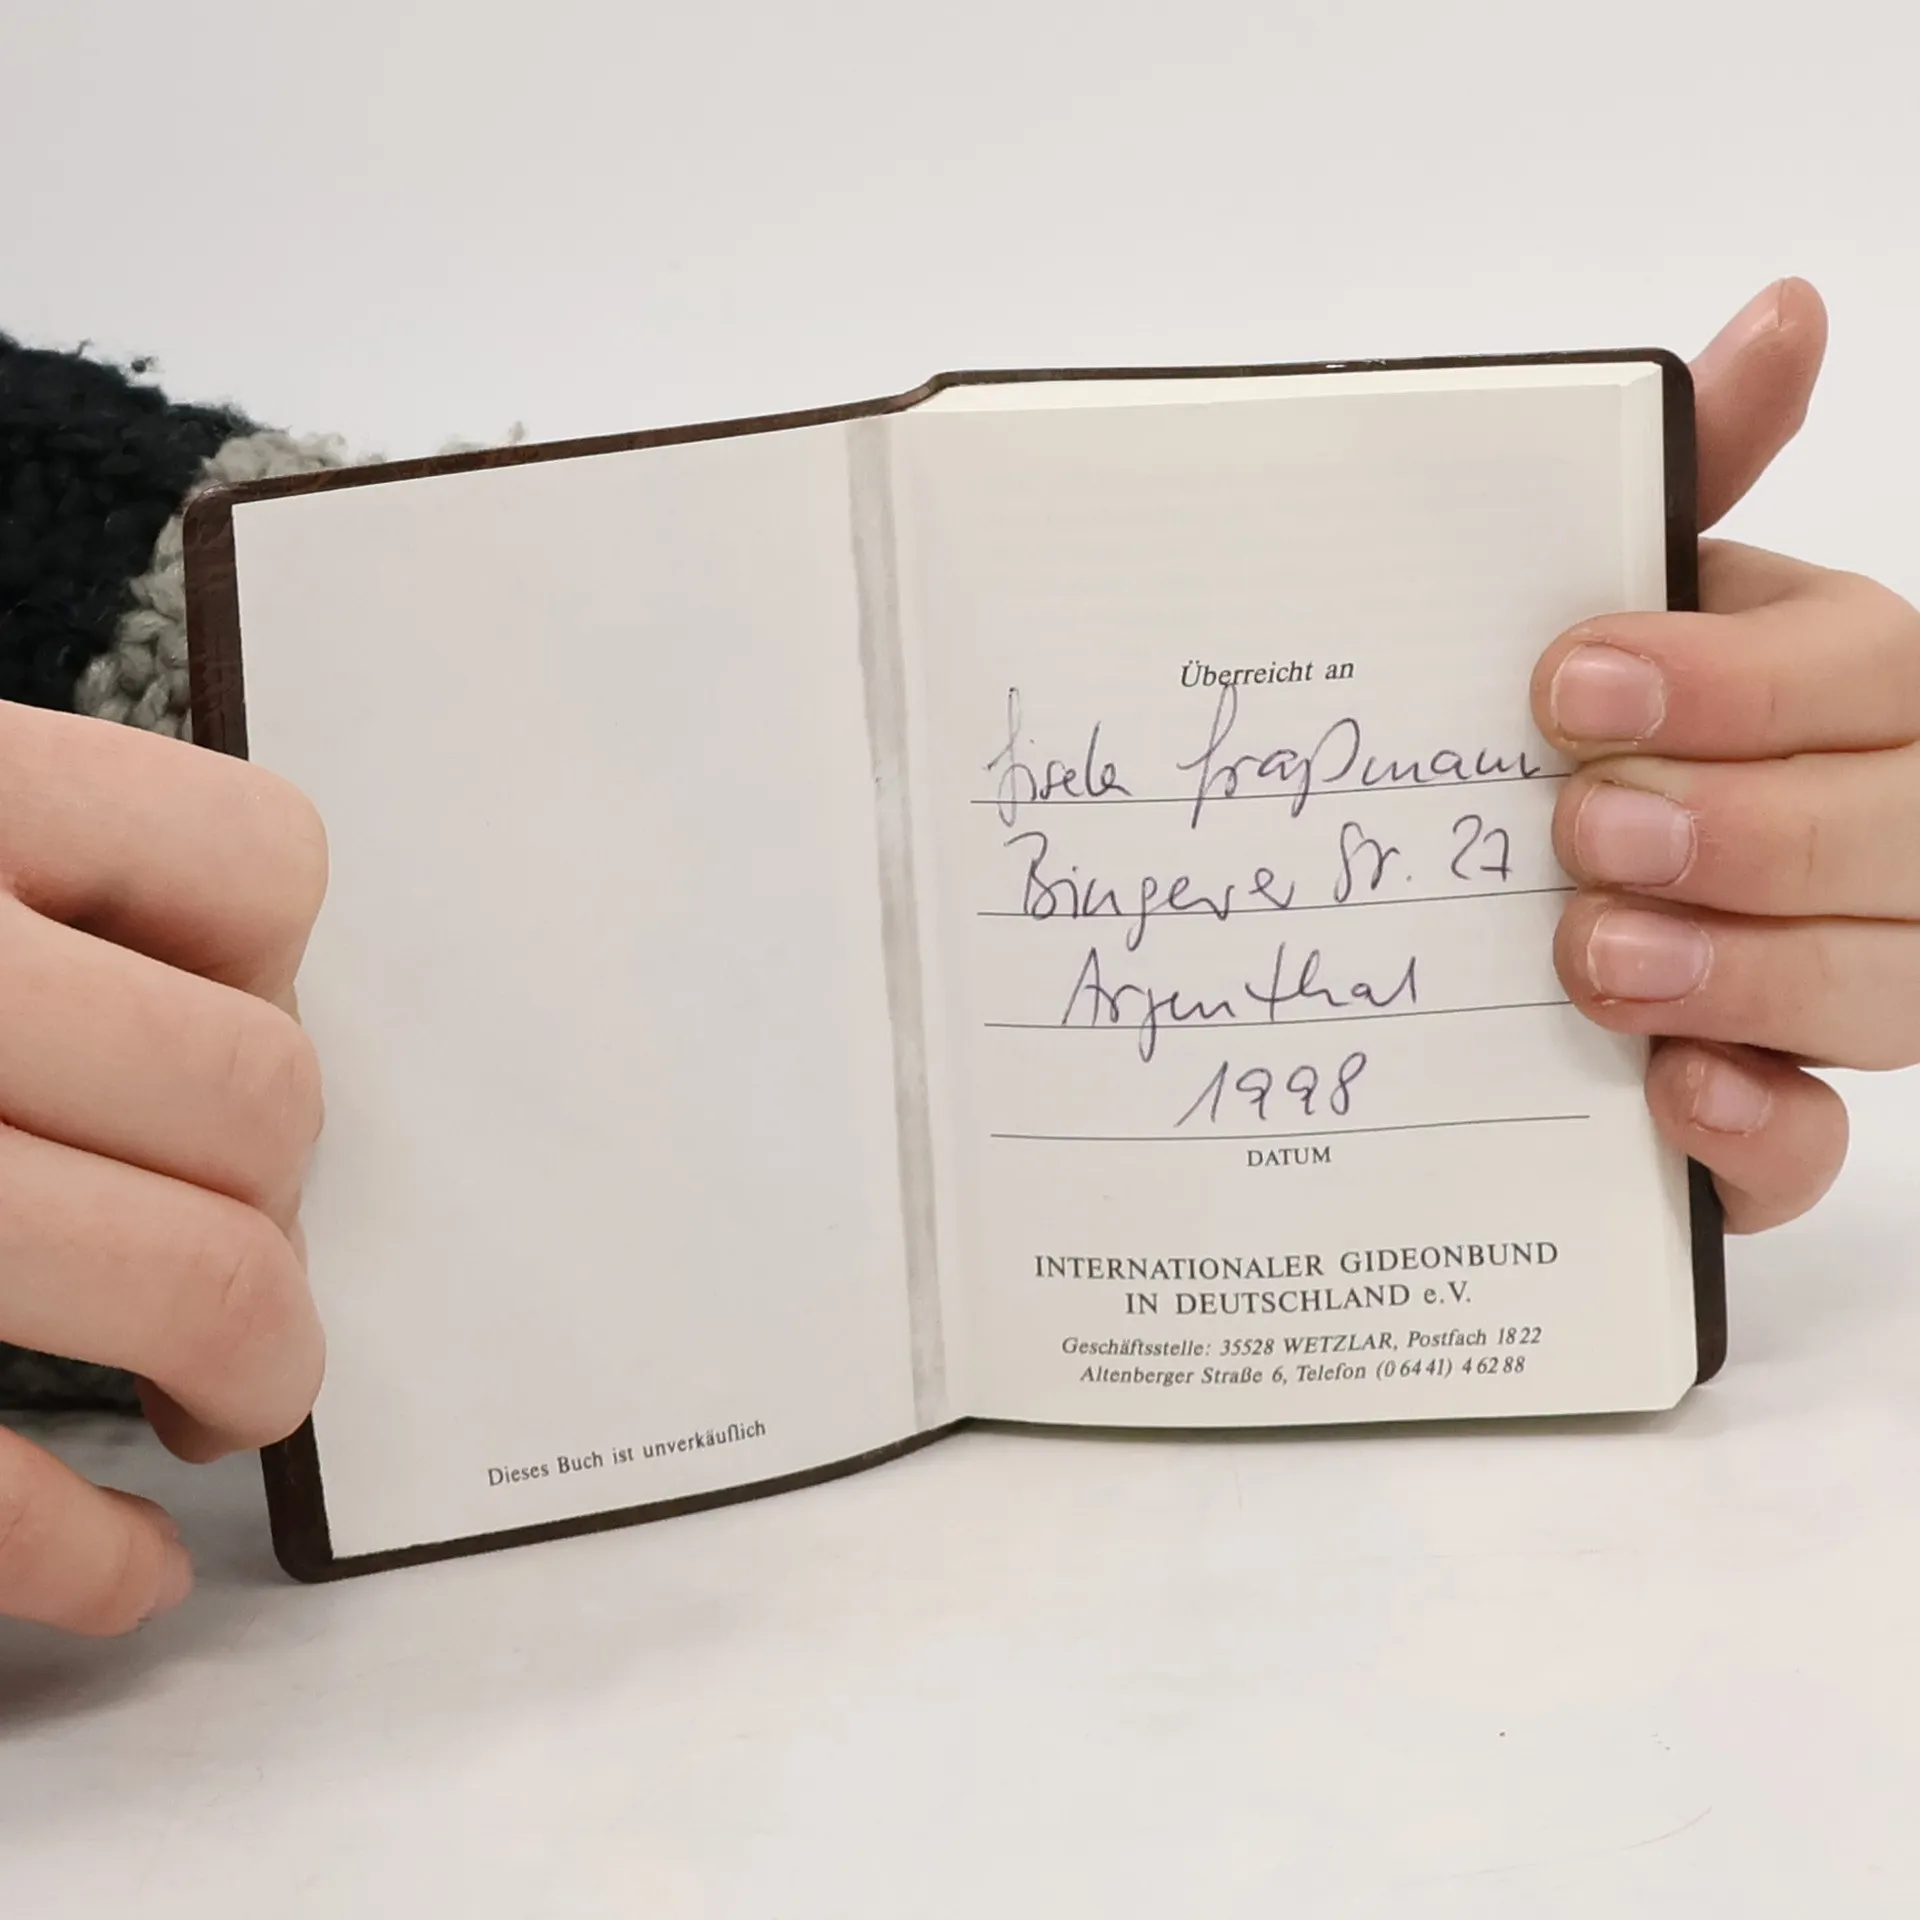 Dieses Buch ist unverkäuflich
Überreicht an
Gisela Graßmann
Bingener Str. 27
Argenthal
1998
DATUM
INTERNATIONALER GIDEONBUND
IN DEUTSCHLAND e.V.
Geschäftsstelle: 35528 WETZLAR, Postfach 18 22
Altenberger Straße 6, Telefon (0 64 41) 4 62 88